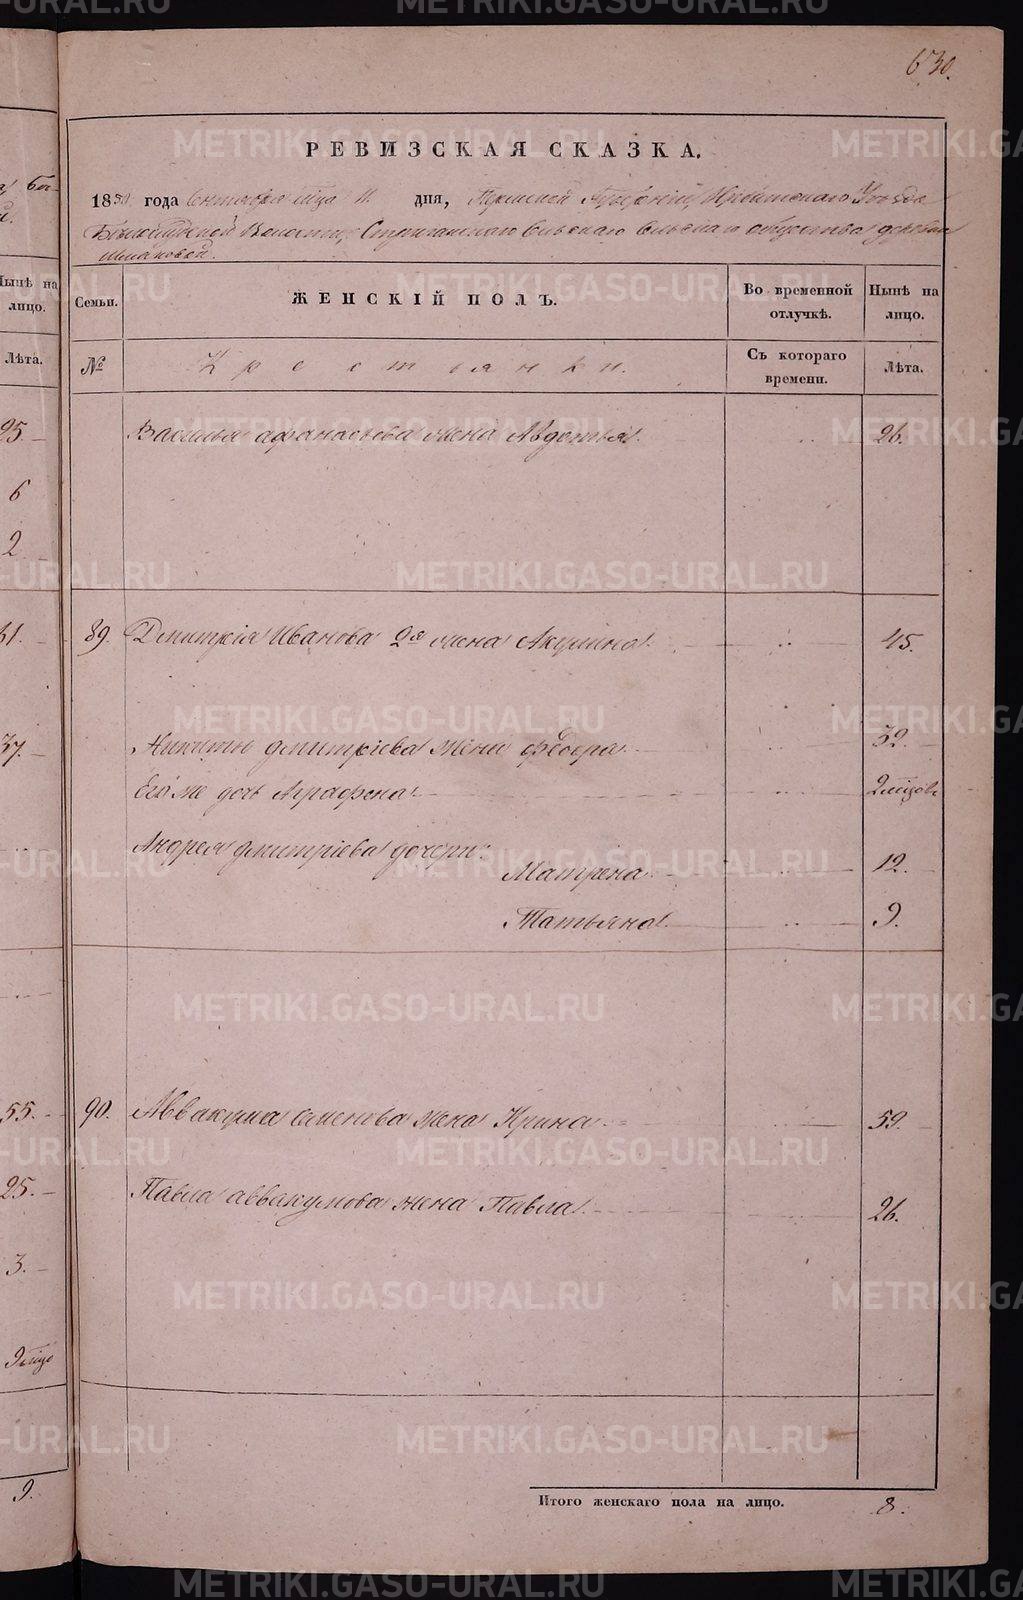 630.
РЕВИЗСКАЯ СКАЗКА.
1850 года Сентября мца 11 дня, Пермской Губернии, Ирбитского Уезда
Белослудской Волости, Стриганского Сельского общества деревни
Нынѣ на лицо.
Семьи.
ЖЕНСКІЙ ПОЛЪ.
Во временной отлучкѣ.
Нынѣ на лицо.
Лѣта.
№
Крестьянки.
Съ котораго времени.
Лѣта.
25
Василья афанасьева жена Авдотья
26.
6
2
31.
89.
Дмитрія Иванова 2я жена Акулина
45.
37.
Никиты дмитріева жена Федора
32.
Его же дочь Аграфена
2 мцовъ
Андрея дмитріева дочери:
Матрена
12.
Татьяна
9.
55.
90.
Аввакума семенова жена Ирина
59.
25.
Павла аввакумова жена Павла
26.
3.
9 мцо
9.
Итого женскаго пола на лицо.
8.
METRIKI.GASO-URAL.RU